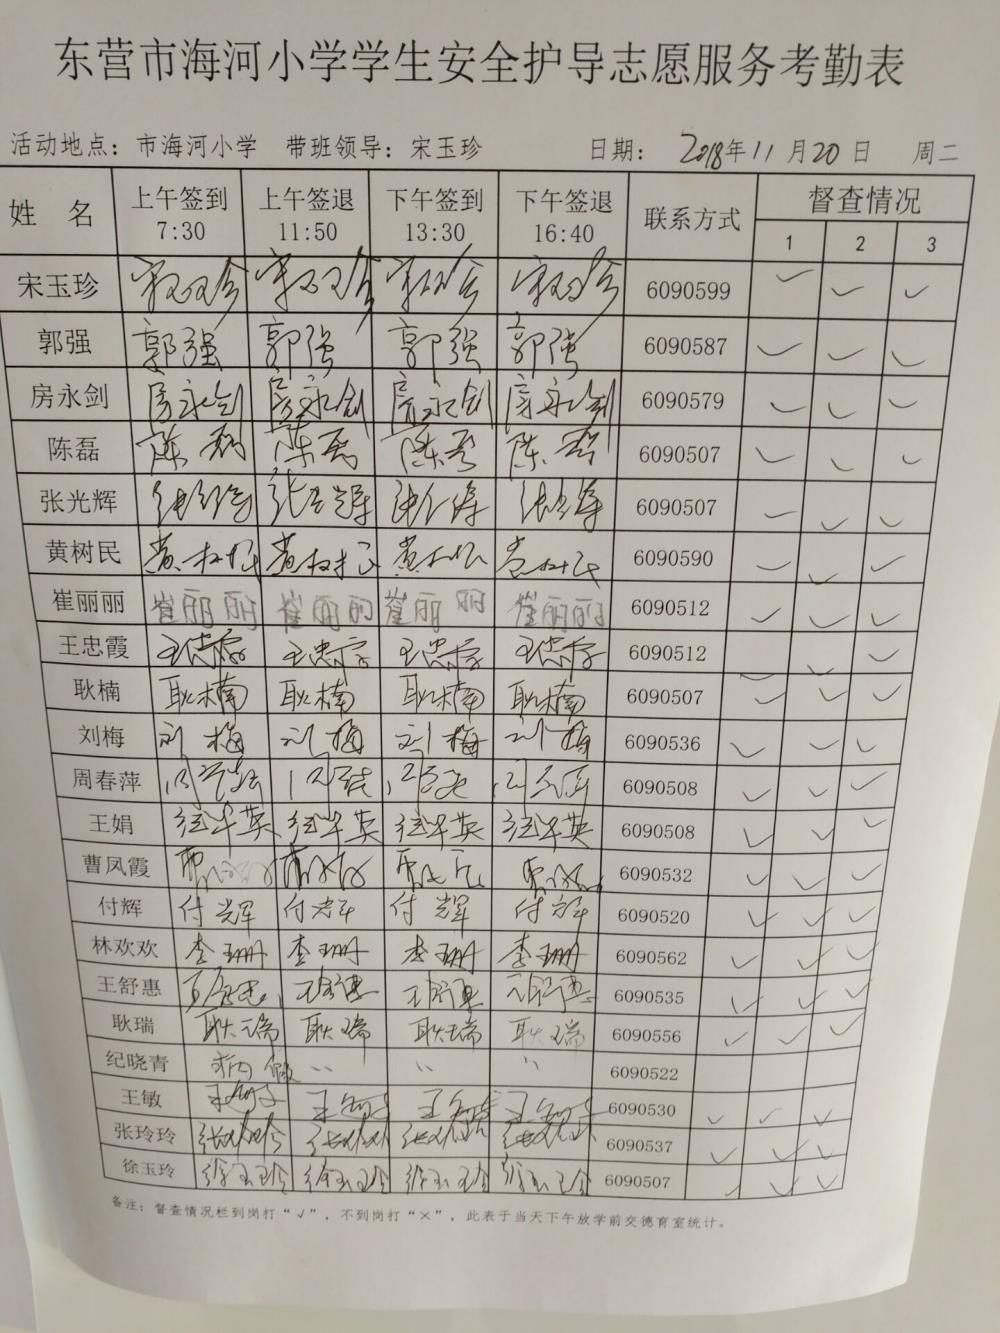 东营市海河小学学生安全护导志愿服务考勤表
活动地点：市海河小学 带班领导：宋玉珍 日期：2018年11月20日 周二
姓 名 上午签到 7:30 上午签退 11:50 下午签到 13:30 下午签退 16:40 联系方式 督查情况 1 2 3
宋玉珍 6090599 ✓ ✓ ✓
郭强 郭强 郭强 郭强 郭强 6090587 ✓ ✓ ✓
房永剑 房永剑 房永剑 房永剑 房永剑 6090579 ✓ ✓ ✓
陈磊 陈磊 陈磊 陈磊 陈磊 6090507 ✓ ✓ ✓
张光辉 张光辉 6090507 ✓ ✓ ✓
黄树民 黄树民 黄树民 黄树民 黄树民 6090590 ✓ ✓ ✓
崔丽丽 崔丽丽 崔丽丽 崔丽丽 崔丽丽 6090512 ✓ ✓ ✓
王忠霞 王忠霞 王忠霞 王忠霞 王忠霞 6090512 ✓ ✓
耿楠 耿楠 耿楠 耿楠 耿楠 6090507 ✓ ✓ ✓
刘梅 刘梅 刘梅 刘梅 刘梅 6090536 ✓ ✓ ✓
周春萍 6090508 ✓ ✓ ✓
王娟 6090508 ✓ ✓ ✓
曹凤霞 6090532 ✓ ✓ ✓
付辉 付辉 付辉 付辉 付辉 6090520 ✓ ✓ ✓
林欢欢 李珊 李珊 李珊 李珊 6090562 ✓ ✓ ✓
王舒惠 6090535 ✓ ✓ ✓
耿瑞 耿瑞 耿瑞 耿瑞 耿瑞 6090556 ✓ ✓ ✓
纪晓青 病假 〃 〃 〃 6090522
王敏 6090530 ✓ ✓ ✓
张玲玲 6090537 ✓ ✓ ✓
徐玉玲 徐玉玲 徐玉玲 徐玉玲 徐玉玲 6090507 ✓ ✓ ✓
备注：督查情况栏到岗打“√”，不到岗打“×”，此表于当天下午放学前交德育室统计。